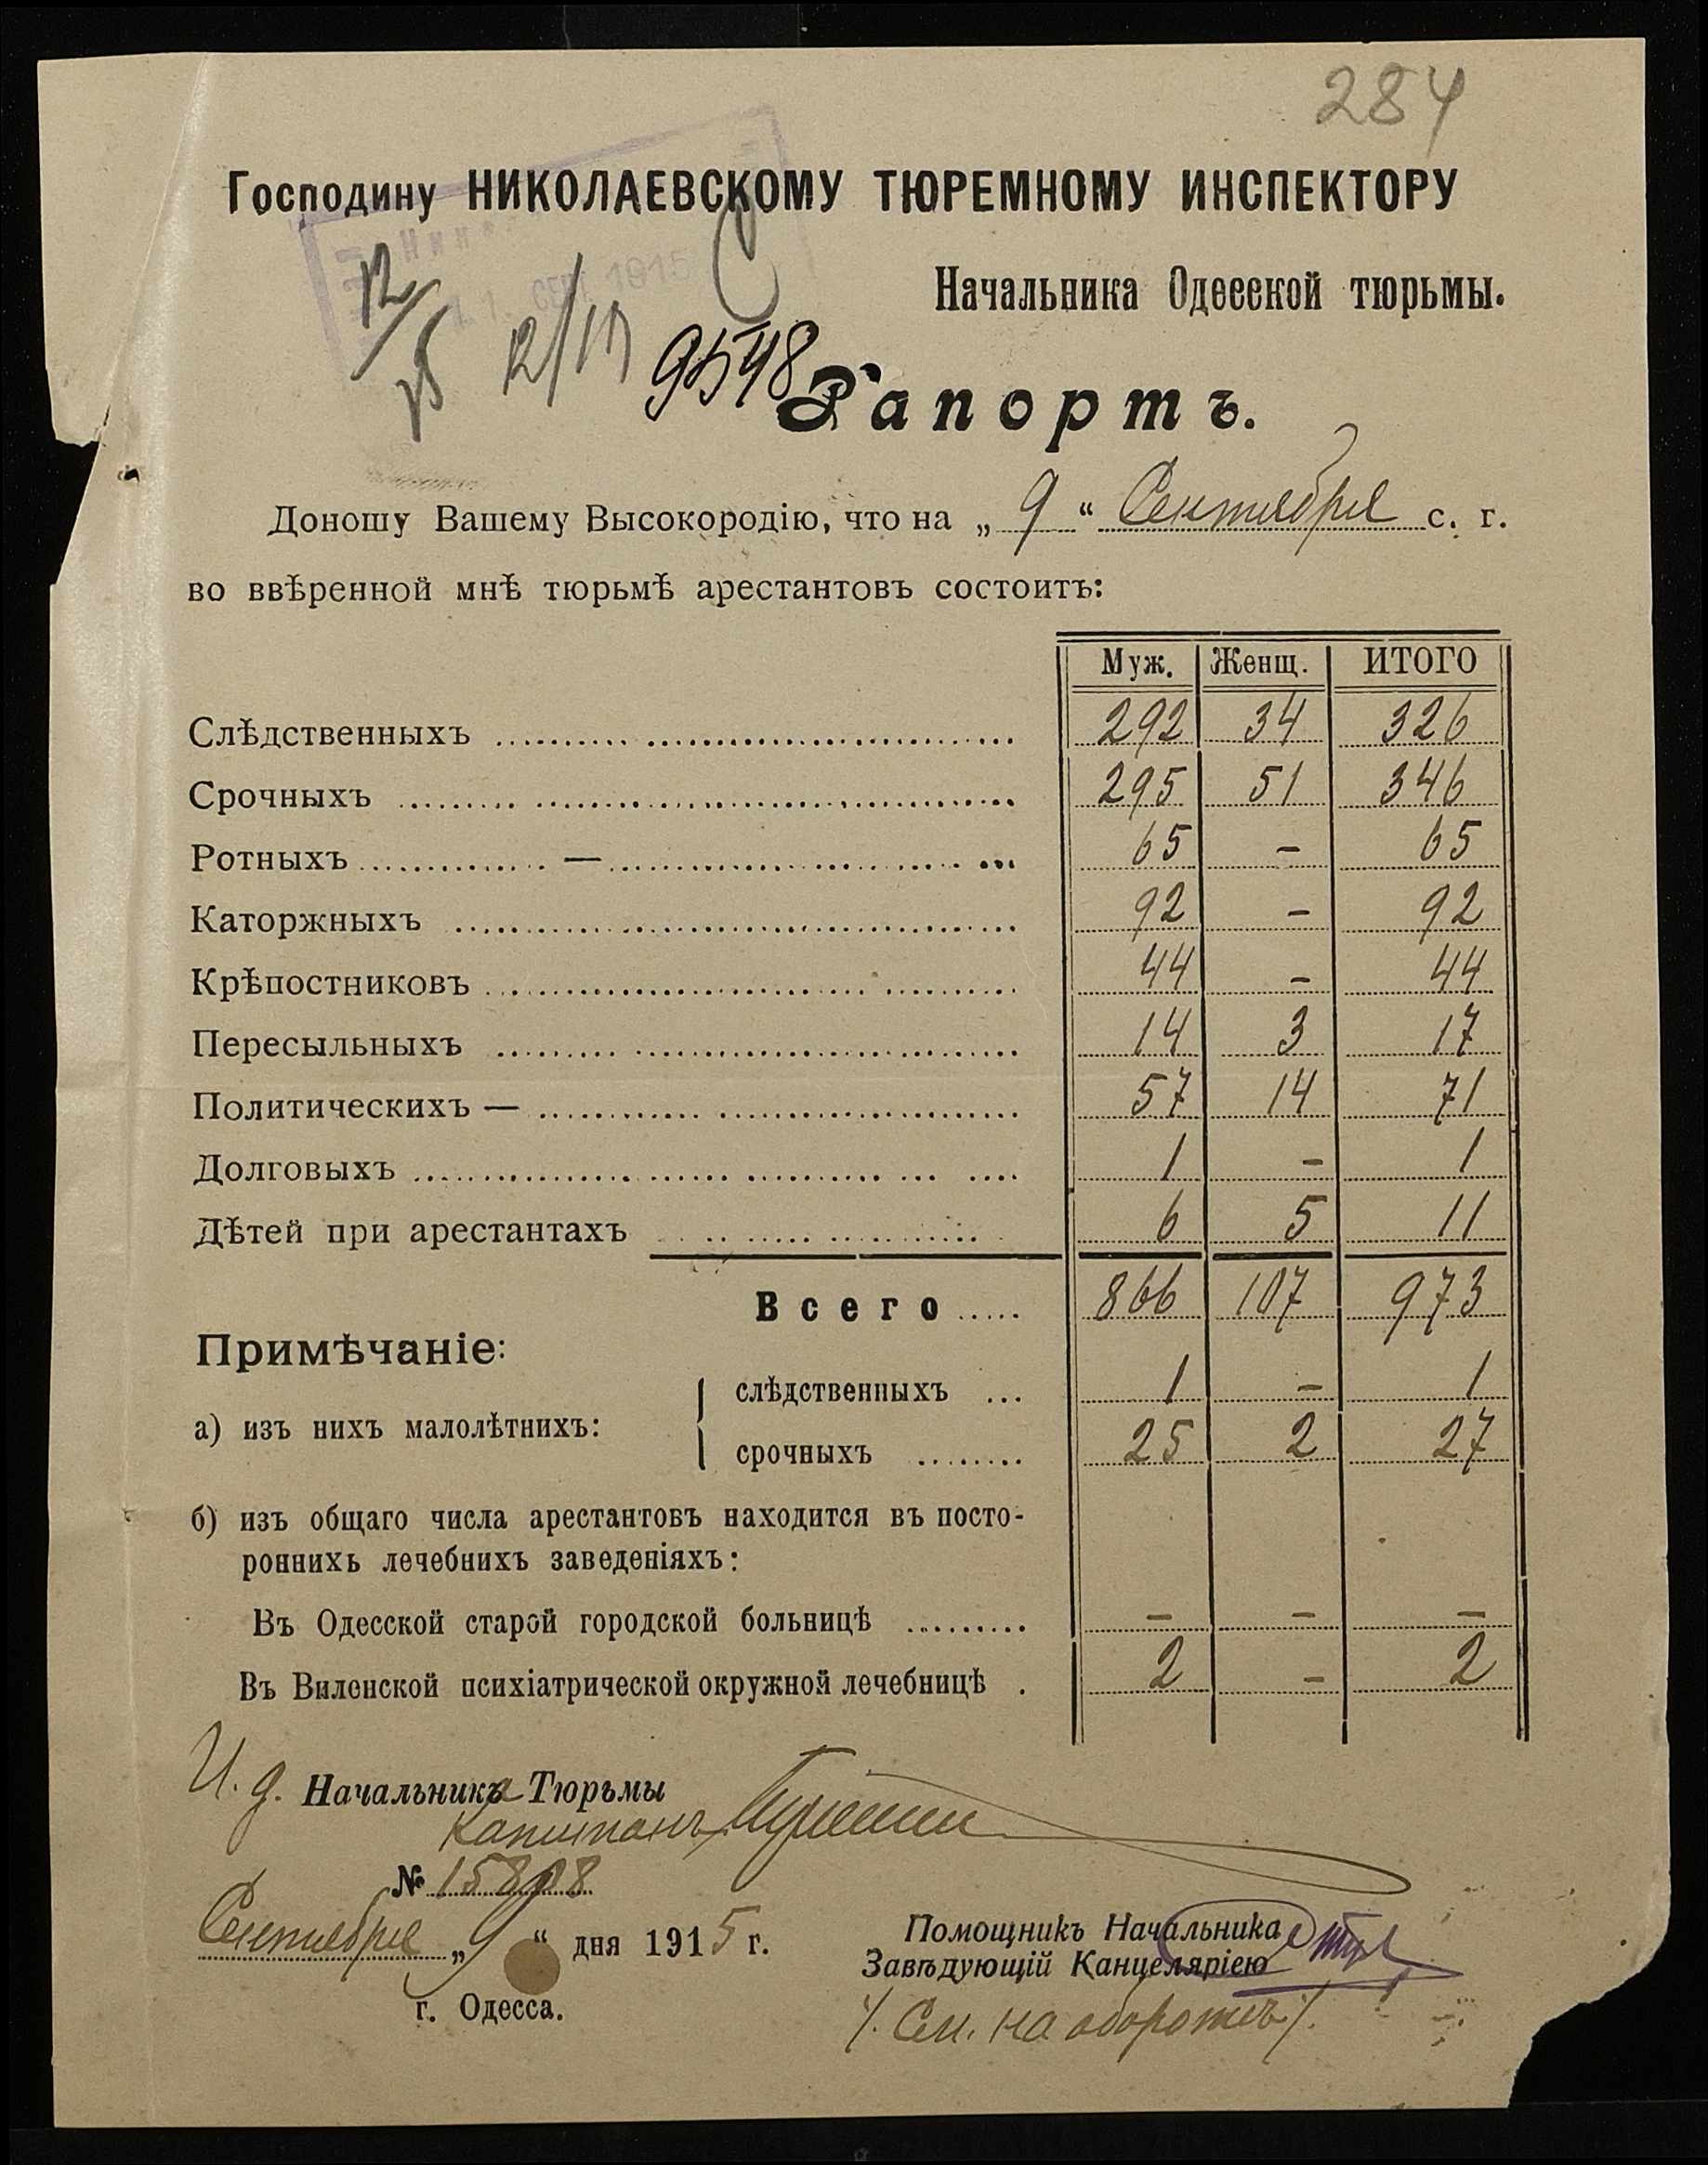 284
Господину НИКОЛАЕВСКОМУ ТЮРЕМНОМУ ИНСПЕКТОРУ
СЕН 1915
Начальника Одесской тюрьмы.
12/IX 9548
Рапортъ.
Доношу Вашему Высокородію, что на „ 9 “ Сентября с. г.
во ввѣренной мнѣ тюрьмѣ арестантовъ состоитъ:
Муж. Женщ. ИТОГО
Слѣдственныхъ 292 34 326
Срочныхъ 295 51 346
Ротныхъ — 65 - 65
Каторжныхъ 92 - 92
Крѣпостниковъ 44 - 44
Пересыльныхъ 14 3 17
Политическихъ — 57 14 71
Долговыхъ 1 - 1
Дѣтей при арестантахъ 6 5 11
Всего 866 107 973
Примѣчаніе:
слѣдственныхъ 1 - 1
а) изъ нихъ малолѣтнихъ:
срочныхъ 25 2 27
б) изъ общаго числа арестантовъ находится въ посто-
роннихь лечебнихъ заведеніяхъ:
Въ Одесской старой городской больницѣ - - -
Въ Виленской психіатрической окружной лечебницѣ . 2 - 2
И. д. Начальника Тюрьмы
Капитанъ
№ 15808
Сентября „ 9 “ дня 1915 г.
г. Одесса.
Помощникъ Начальника
Завѣдующій Канцеляріею
/. См. на оборотѣ /.